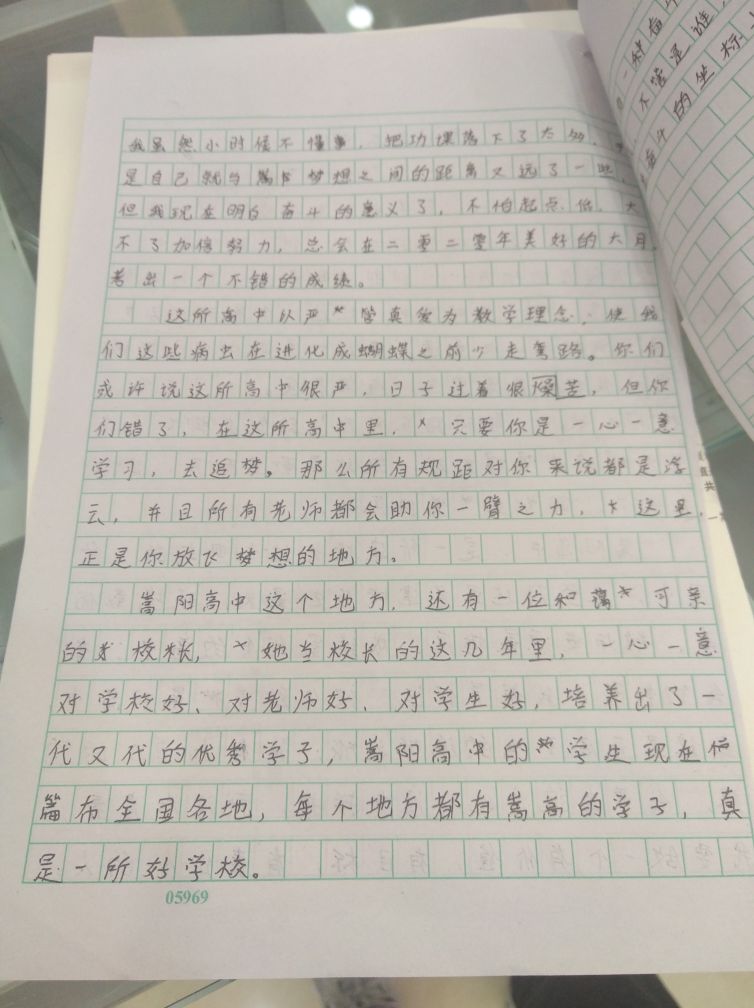 我虽然小时候不懂事，把功课落下了太多，
是自己就与嵩阳梦想之间的距离又远了一些，
但我现在明白奋斗的意义了，不怕起点低，大
不了加倍努力，总会在二零二零年美好的六月，
考出一个不错的成绩。
这所高中以严 皆真爱为教学理念，使我
们这些病虫在进化成蝴蝶之前少走弯路。你们
或许说这所高中很严，日子过着很燥苦，但你
们错了，在这所高中里，只要你是一心一意
学习，去追梦。那么所有规距对你来说都是浮
云，并且所有老师都会助你一臂之力，这里，
正是你放飞梦想的地方。
嵩阳高中这个地方，还有一位和蔼可亲
的校长，她当校长的这几年里，一心一意
对学校好、对老师好、对学生好，培养出了一
代又代的优秀学子，嵩阳高中的学生现在
篇布全国各地，每个地方都有嵩高的学子，真
是一所好学校。
05969
一种奋
不管是谁
奋斗的坐标